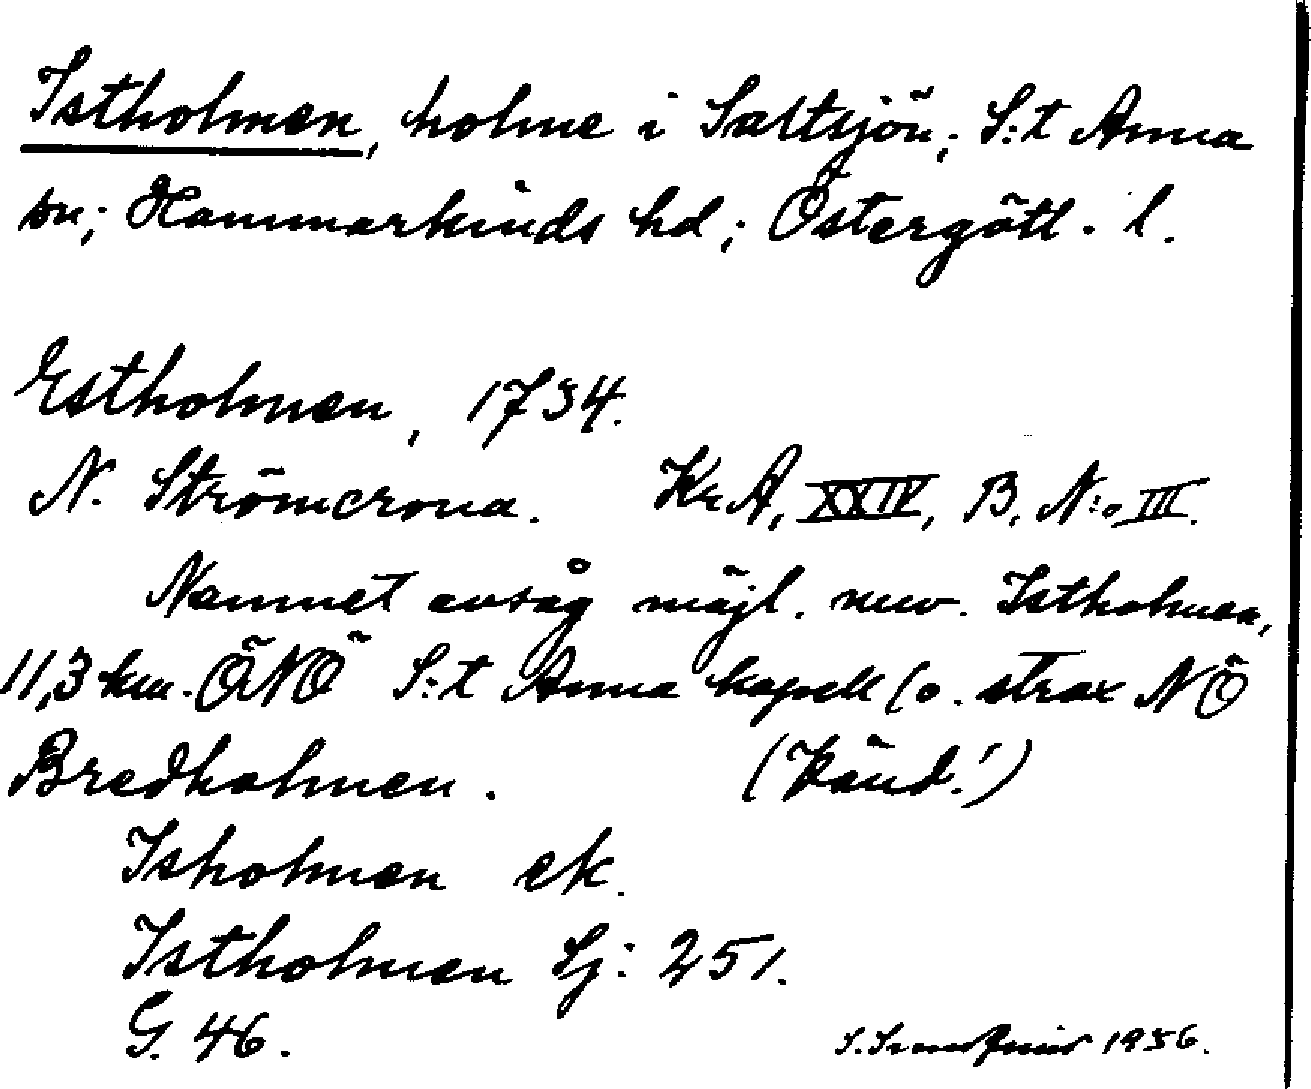 Istholmen, holme i Saltsjön; S:t Anna
sn; Hammarkinds hd; Östergötl. l.
Estholmen, 1734.
N. Strömcrona. KrA, XXIV, B, N:o III.
Namnet avsåg möjl. nuv. Istholmen,
11,3 km. ÖNÖ S:t Anna kapell (o. strax NÖ
Bredholmen. (känd!)
Isholmen ek.
Istholmen Sj: 251.
G. 46.
S. 1936.